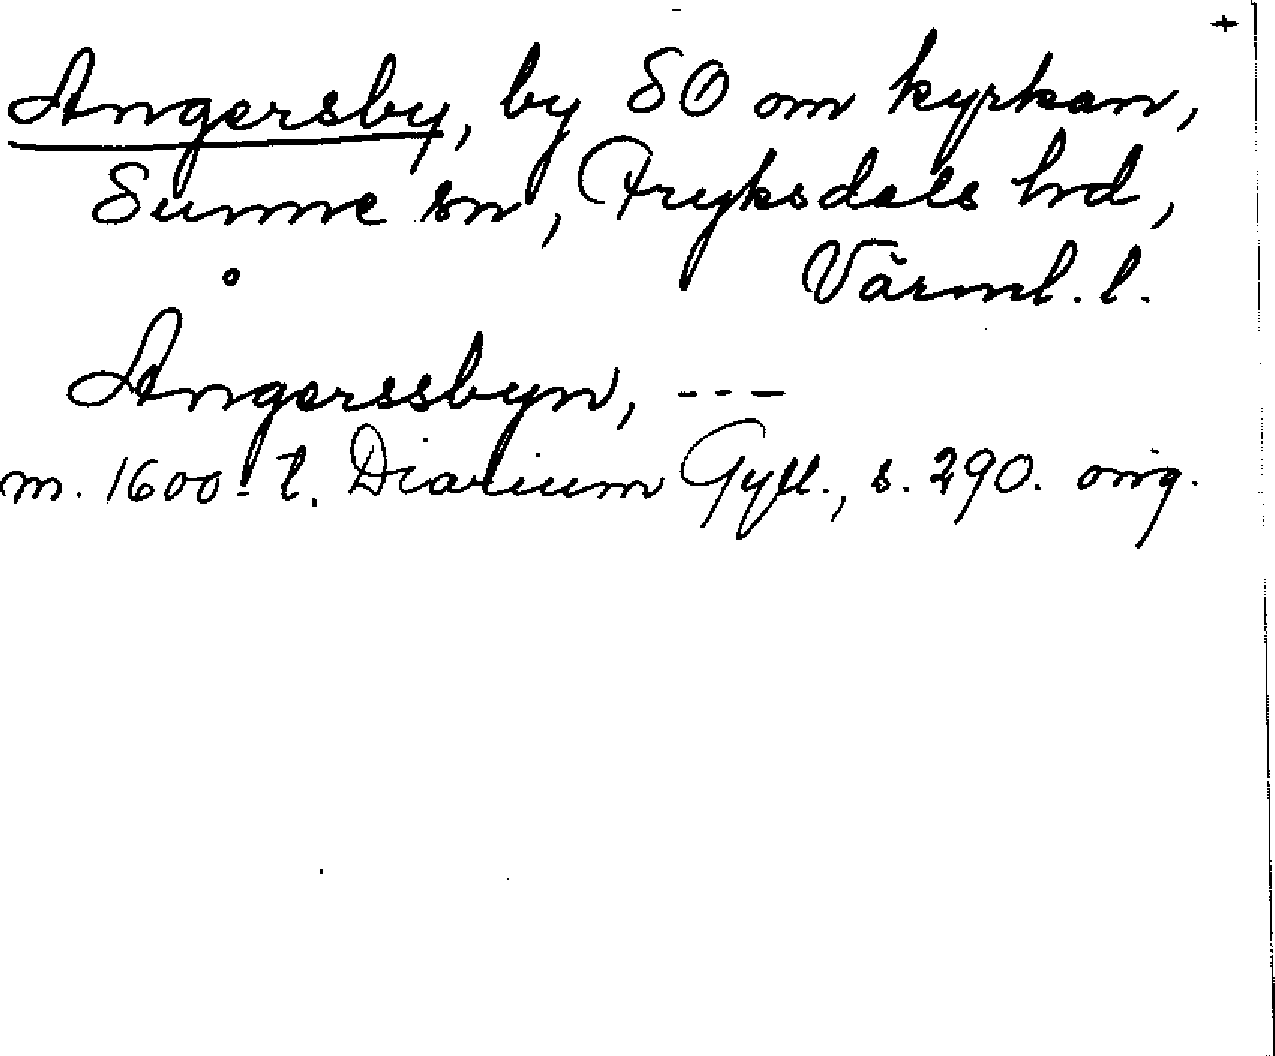 Angersby, by SO om kyrkan,
Sunne sn, Fryksdals hd,
Värml. l.
Ångerssbyn, ---
m. 1600-t. Diarium Gyll., s. 290. orig.